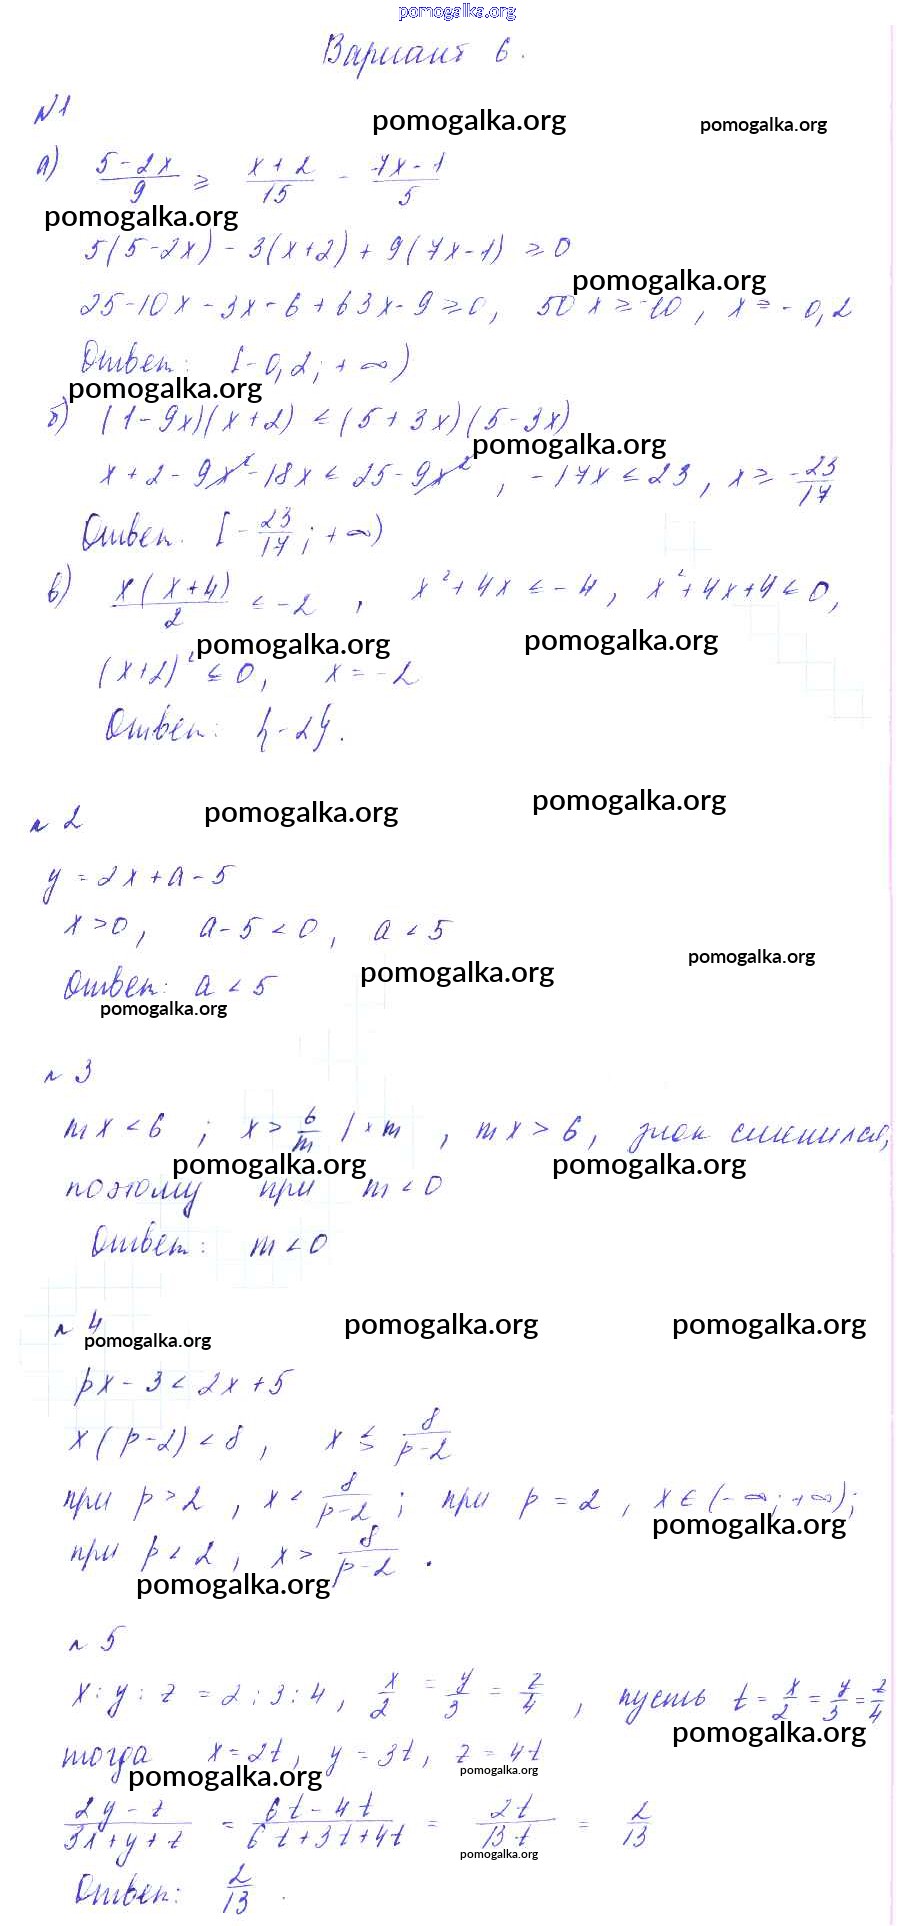 pomogalka.org
Вариант 6.
N1
pomogalka.org pomogalka.org
а) (5-2x)/9 ≥ (x+2)/15 - (7x-1)/5
pomogalka.org
5(5-2x) - 3(x+2) + 9(7x-1) ≥ 0
pomogalka.org
25-10x-3x-6+63x-9≥0, 50x≥-10, x≥-0,2
Ответ: [-0,2; +∞)
pomogalka.org
б) (1-9x)(x+2) ≤ (5+3x)(5-3x)
pomogalka.org
x+2-9x²-18x ≤ 25-9x², -17x ≤ 23, x ≥ -23/17
Ответ. [-23/17; +∞)
в) x(x+4)/2 ≤ -2, x²+4x ≤ -4, x²+4x+4≤0,
pomogalka.org pomogalka.org
(x+2)² ≤ 0, x = -2
Ответ: {-2}.
pomogalka.org pomogalka.org
N 2
y = 2x + a - 5
x>0, a-5<0, a<5
pomogalka.org pomogalka.org
Ответ: a < 5
pomogalka.org
N 3
mx < 6; x > 6/m | · m, mx > 6, знак сменился,
pomogalka.org pomogalka.org
поэтому при m < 0
Ответ: m < 0
N 4
pomogalka.org pomogalka.org pomogalka.org
px - 3 < 2x + 5
x(p-2) < 8, x ≶ 8/(p-2)
при p > 2, x < 8/(p-2); при p = 2, x ∈ (-∞; +∞);
pomogalka.org
при p < 2, x > 8/(p-2).
pomogalka.org
N 5
x : y : z = 2 : 3 : 4, x/2 = y/3 = z/4, пусть t = x/2 = y/3 = z/4
pomogalka.org
тогда x = 2t, y = 3t, z = 4t
pomogalka.org pomogalka.org
(2y-z)/(3x+y+z) = (6t-4t)/(6t+3t+4t) = 2t/13t = 2/13
pomogalka.org
Ответ: 2/13.